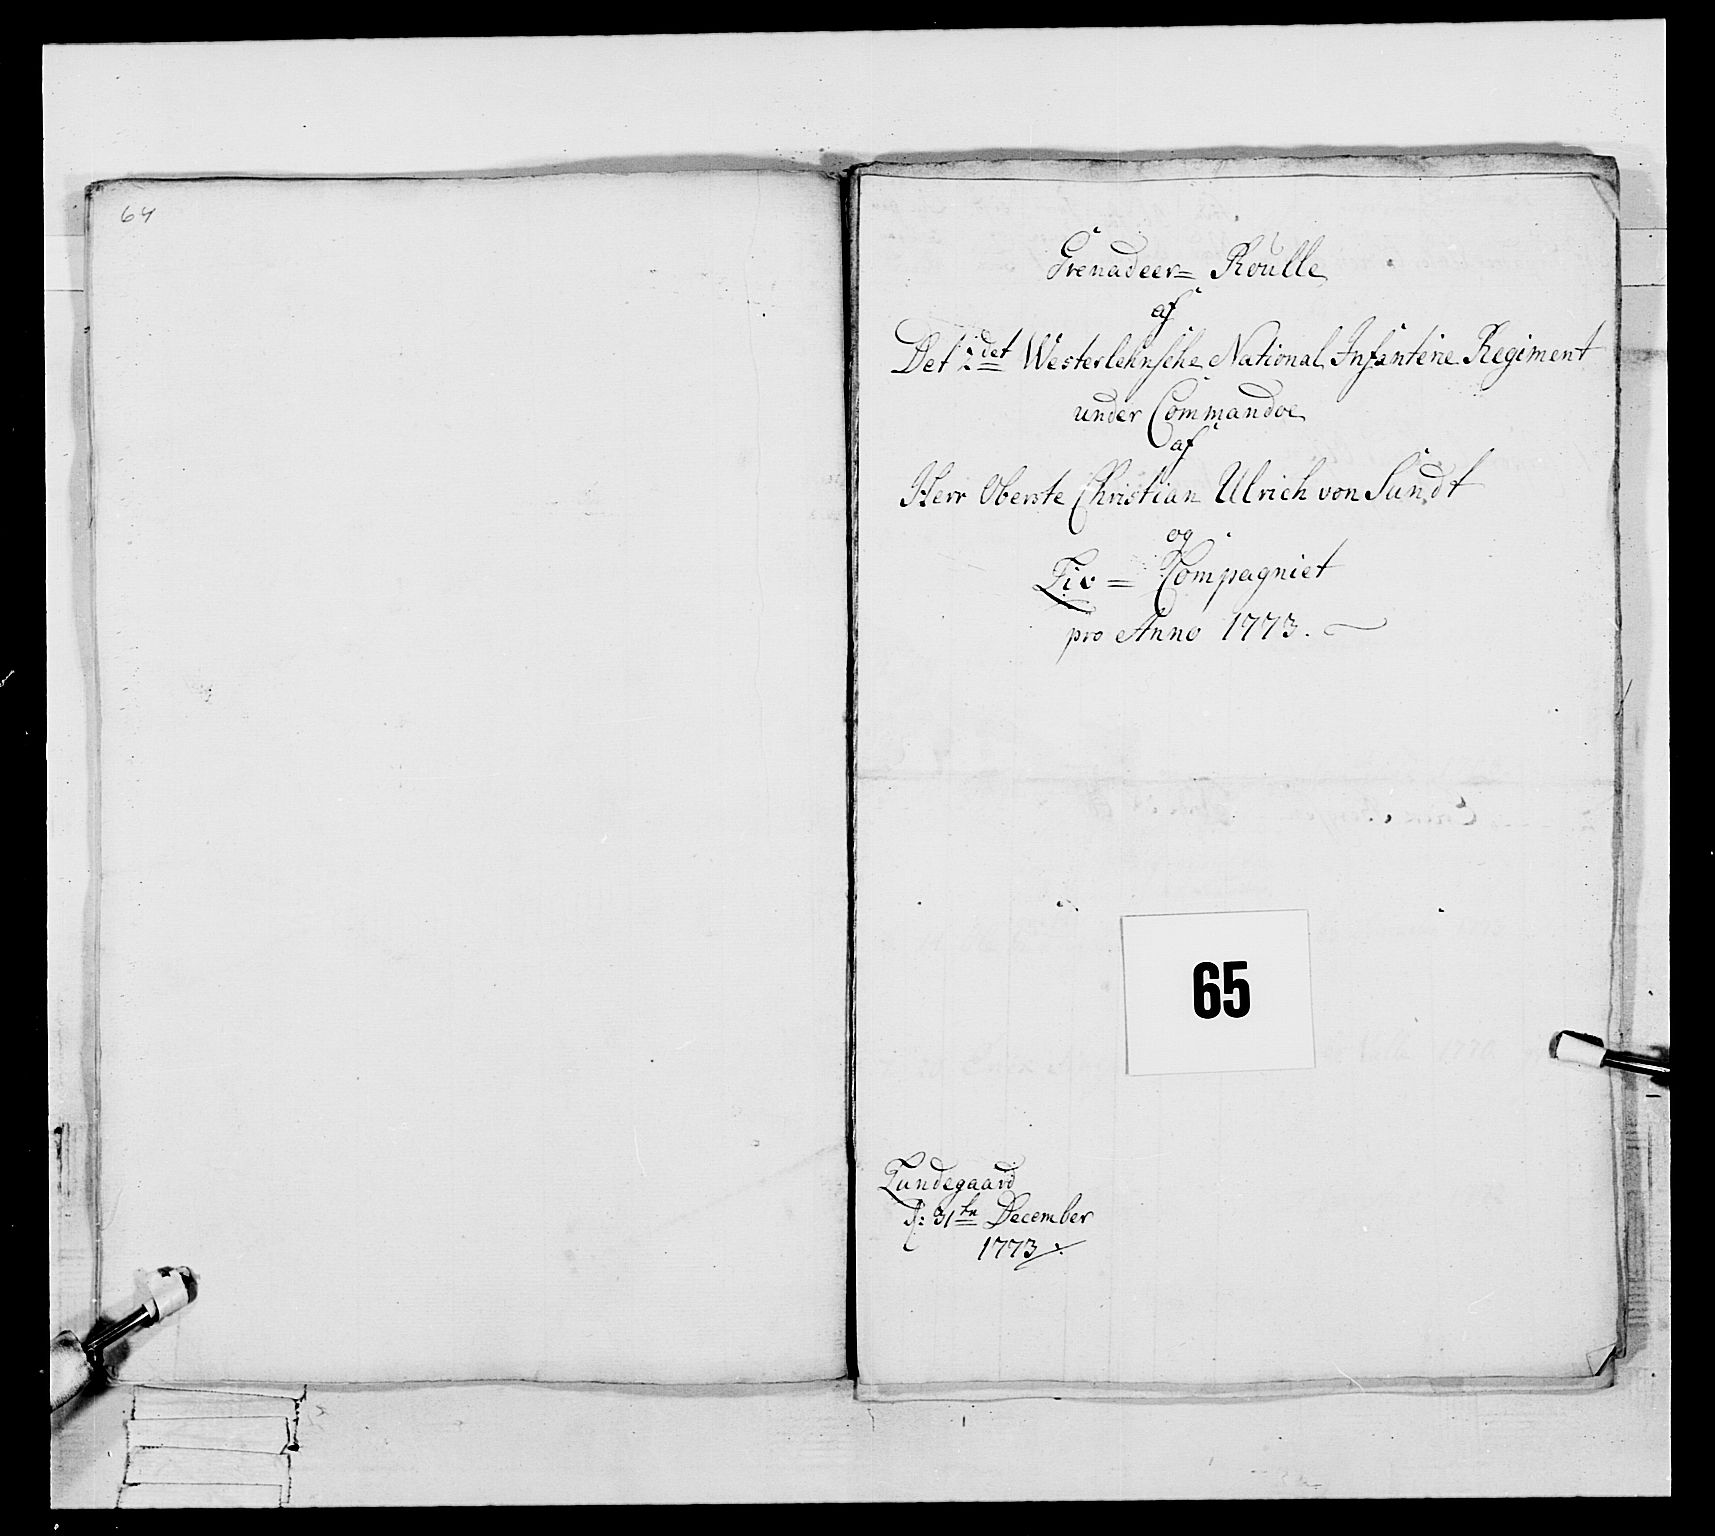 64
Grenadeer= Roulle
af
Det 2det Westerlehnsche National Infanterie Regiment
under Commandoe
af
Herr Oberste Christian Ulrich von Sundt
og
Liv= Compagniet
pro Anno 1773.
65
Lundegaard
d: 31te December
1773